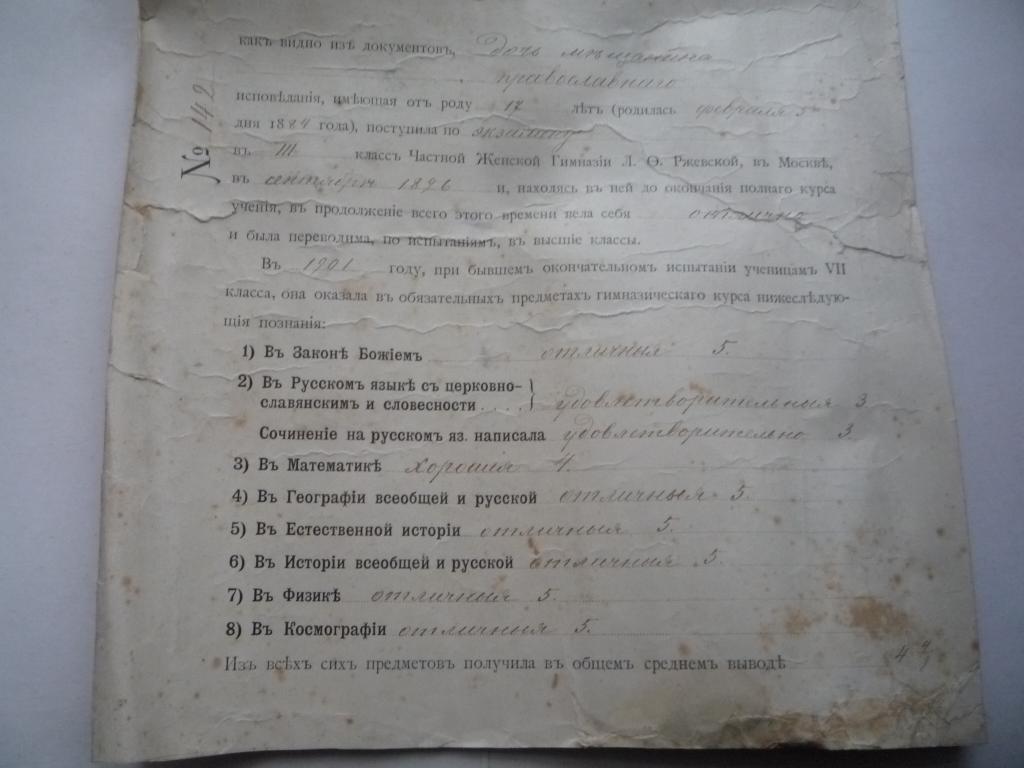 какъ видно изъ документовъ, Дочь мѣщанина
православнаго
исповѣданія, имѣющая отъ роду 17 лѣтъ (родилась февраля 5
дня 1884 года), поступила по экзамену
№ 142
въ III классъ Частной Женской Гимназіи Л. Ѳ. Ржевской, въ Москвѣ,
въ сентябрѣ 1896 и, находясь въ ней до окончанія полнаго курса
ученія, въ продолженіе всего этого времени вела себя отлично
и была переводима, по испытаніямъ, въ высшіе классы.
Въ 1901 году, при бывшемъ окончательномъ испытаніи ученицамъ VII
класса, она оказала въ обязательныхъ предметахъ гимназическаго курса нижеслѣдую-
щія познанія:
1) Въ Законѣ Божіемъ отличныя 5.
2) Въ Русскомъ языкѣ съ церковно-
славянскимъ и словесности .... } удовлетворительныя 3
Сочиненіе на русскомъ яз. написала удовлетворительно 3.
3) Въ Математикѣ хорошія 4.
4) Въ Географіи всеобщей и русской отличныя 5.
5) Въ Естественной исторіи отличныя 5.
6) Въ Исторіи всеобщей и русской отличныя 5.
7) Въ Физикѣ отличныя 5.
8) Въ Космографіи отличныя 5.
Изъ всѣхъ сихъ предметовъ получила въ общемъ среднемъ выводѣ 4